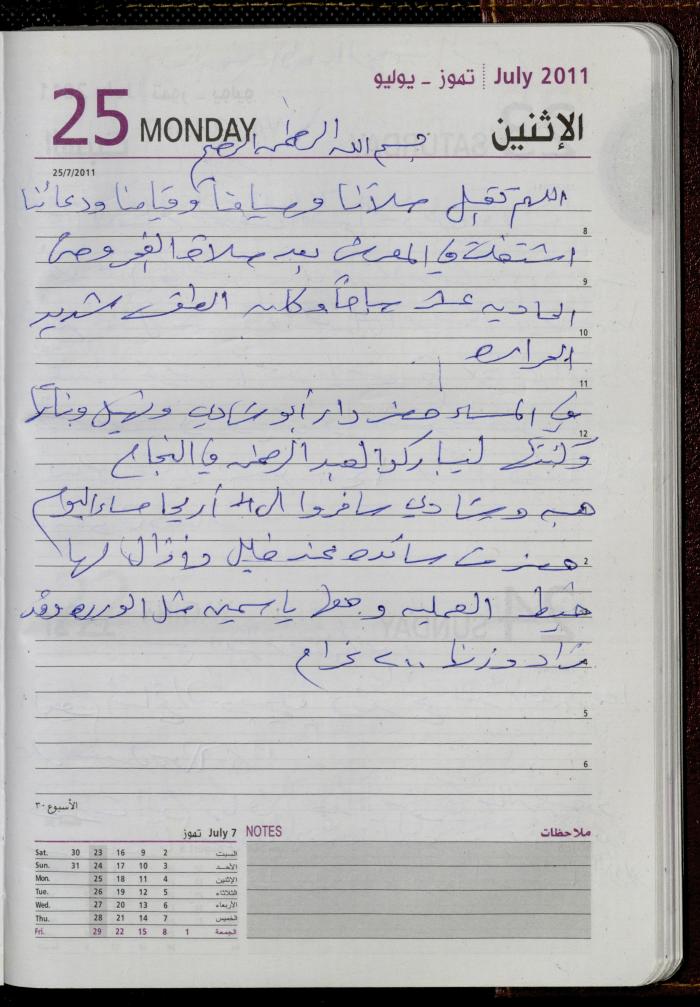 July 2011 تموز - يوليو
25 MONDAY الإثنين
بسم الله الرحمن الرحيم
25/7/2011
اللهم تقبل صلاتنا وصيامنا وقيامنا ودعائنا
8
اشتغلت في المعرش بعد صلاة الفجر وحتى
9
الحادية عشر صباحاً وكان الطقس شديد
10
الحرارة
11
في المساء حضر دار أبو شادي ونهيل
12
ليباركوا لعبد الرحمن في النجاح
هبه وشادي سافروا الى أريحا مساء اليوم
حضرت سائده عند خليل لها
2
خيط العملية ومعها ياسمين مثل الورده وقد
زاد وزنها ٢٠٠ غرام
5
6
الأسبوع ٣٠
July 7 تموز
Sat. 30 23 16 9 2 السبت
Sun. 31 24 17 10 3 الأحد
Mon. 25 18 11 4 الإثنين
Tue. 26 19 12 5 الثلاثاء
Wed. 27 20 13 6 الأربعاء
Thu. 28 21 14 7 الخميس
Fri. 29 22 15 8 1 الجمعة
NOTES ملاحظات